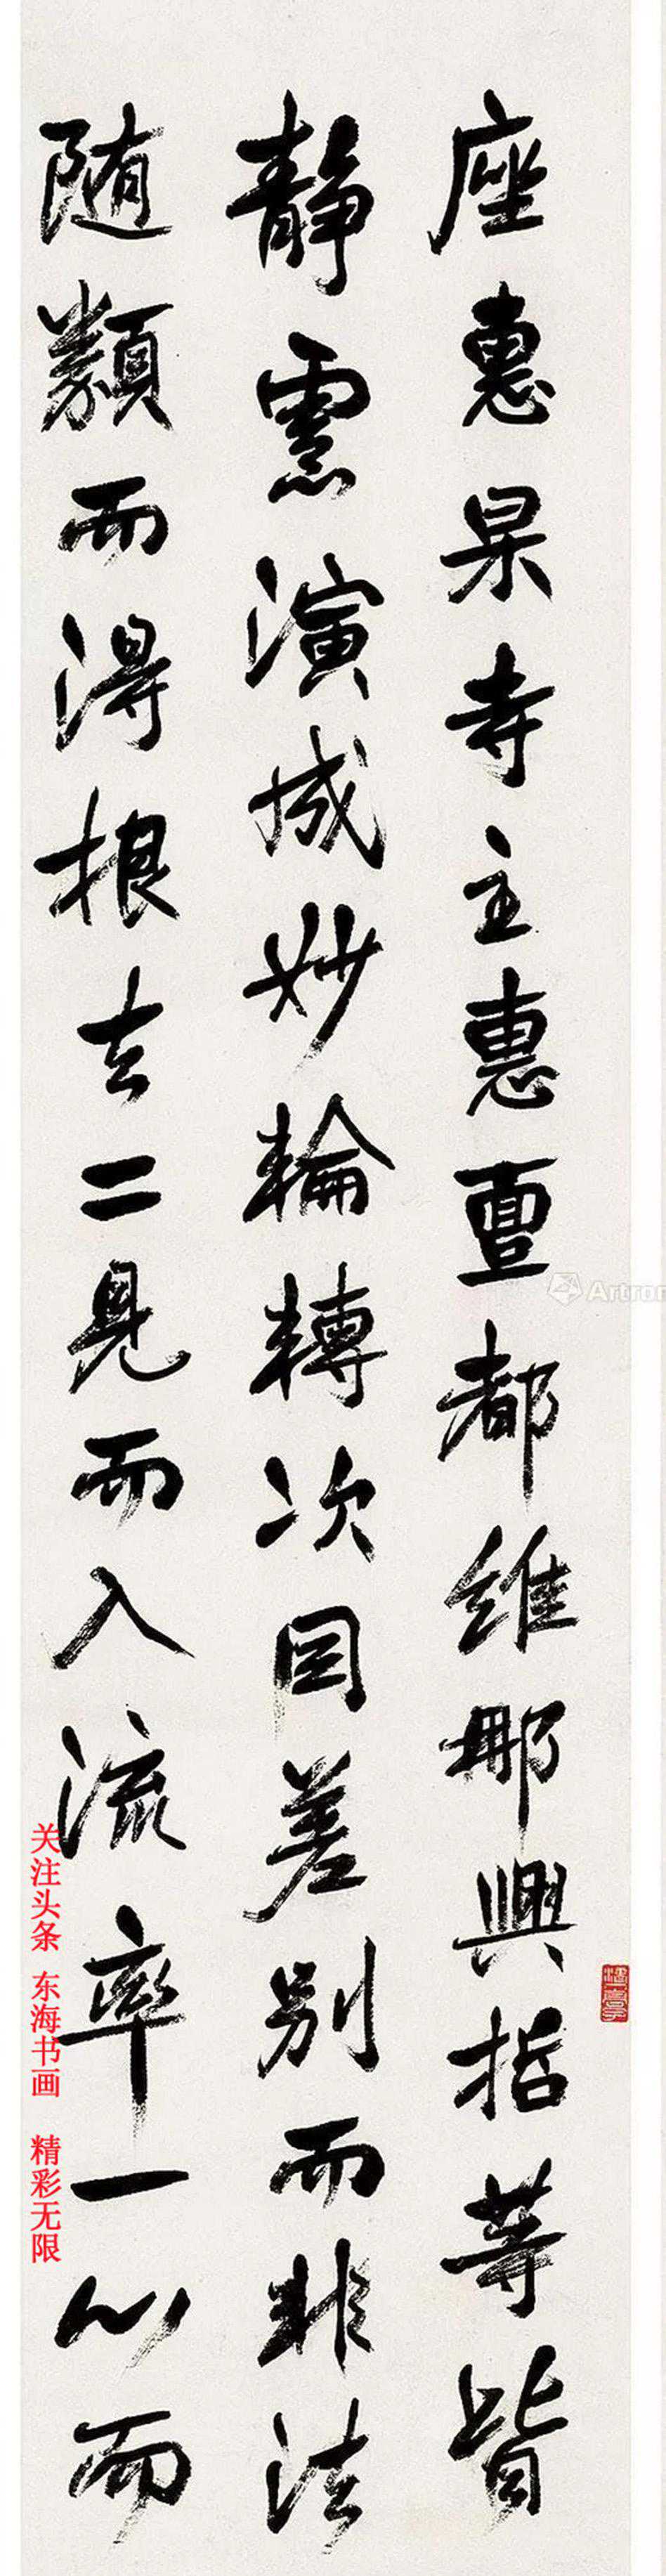 座惠杲寺主惠亶都維那興哲等皆
静慮演成妙輪轉次因差别而非法
随類而得根去二見而入流率一心而
关注头条 东海书画 精彩无限
Artron